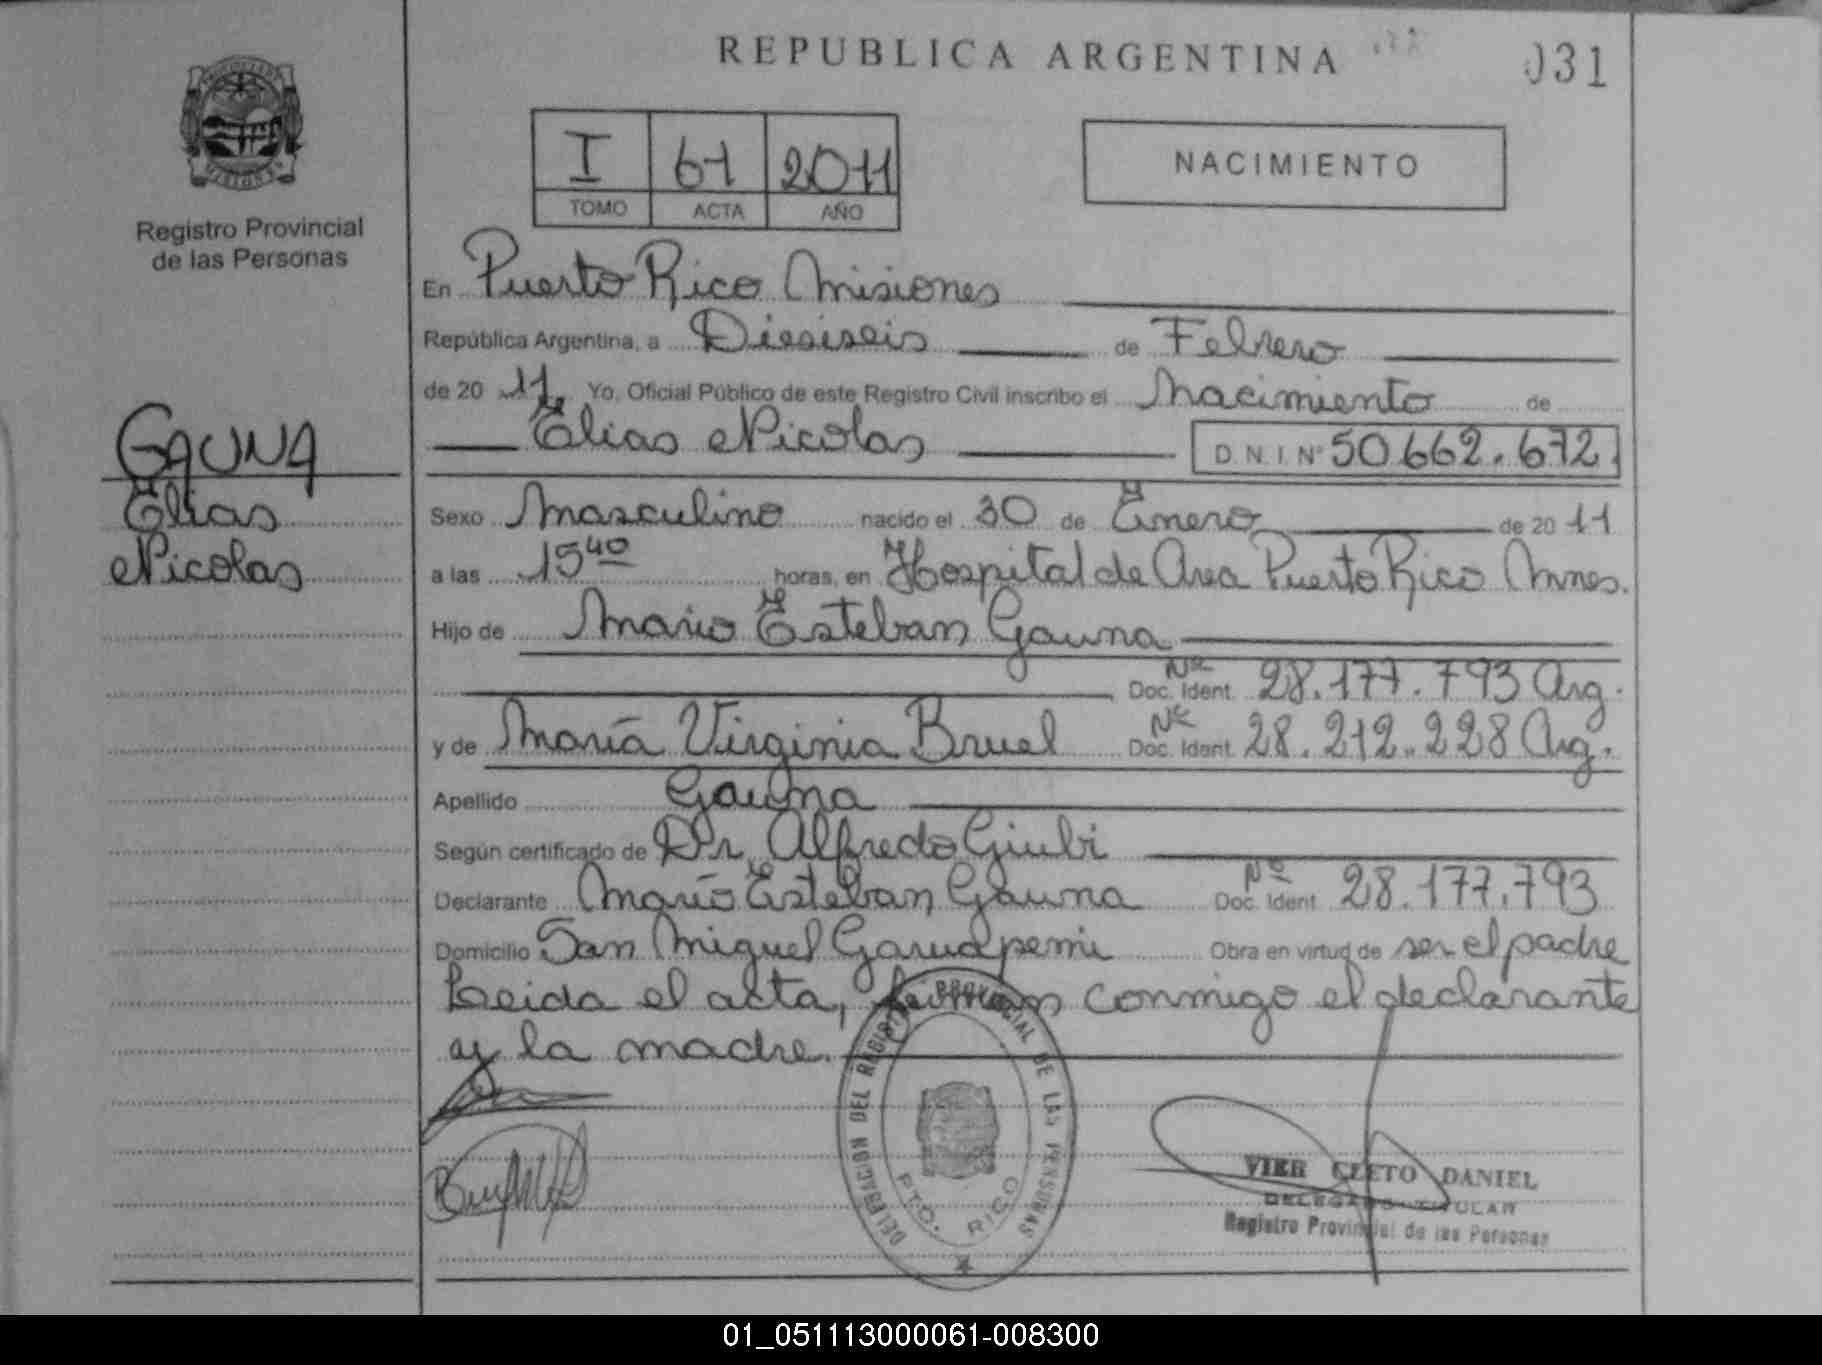 REPUBLICA ARGENTINA
031
I 61 2011
TOMO ACTA AÑO
NACIMIENTO
Registro Provincial
de las Personas
En Puerto Rico Misiones
República Argentina, a Dieciseis de Febrero
de 20 11, Yo, Oficial Público de este Registro Civil inscribo el Nacimiento de
Elias Nicolas D.N.I. Nº 50.662.672.
GAUNA
Elias
Nicolas
Sexo Masculino nacido el 30 de Enero de 20 11
a las 15 40 horas, en Hospital de Area Puerto Rico Mnes.
Hijo de Mario Esteban Gauna
Doc. Ident. Nº 28.177.793 Arg.
y de María Virginia Bruel Doc. Ident. Nº 28.212.228 Arg.
Apellido Gauna
Según certificado de Dr. Alfredo Giubi
Declarante Mario Esteban Gauna Doc. Ident. Nº 28.177.793
Domicilio San Miguel Garuapemi Obra en virtud de ser el padre
Leida el acta, firman conmigo el declarante
y la madre.
DELEGACION DEL REGISTRO PROVINCIAL DE LAS PERSONAS
PTO. RICO
VIER CLETO DANIEL
DELEGADO TITULAR
Registro Provincial de las Personas
01_051113000061-008300